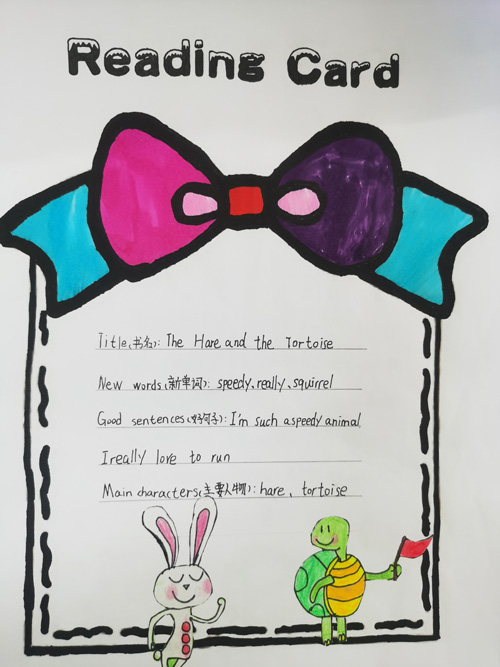 Reading Card
Title(书名): The Hare and the Tortoise
New words(新单词): speedy、really、squirrel
Good sentences(好句子): I'm such a speedy animal
I really love to run
Main characters(主要人物): hare、tortoise